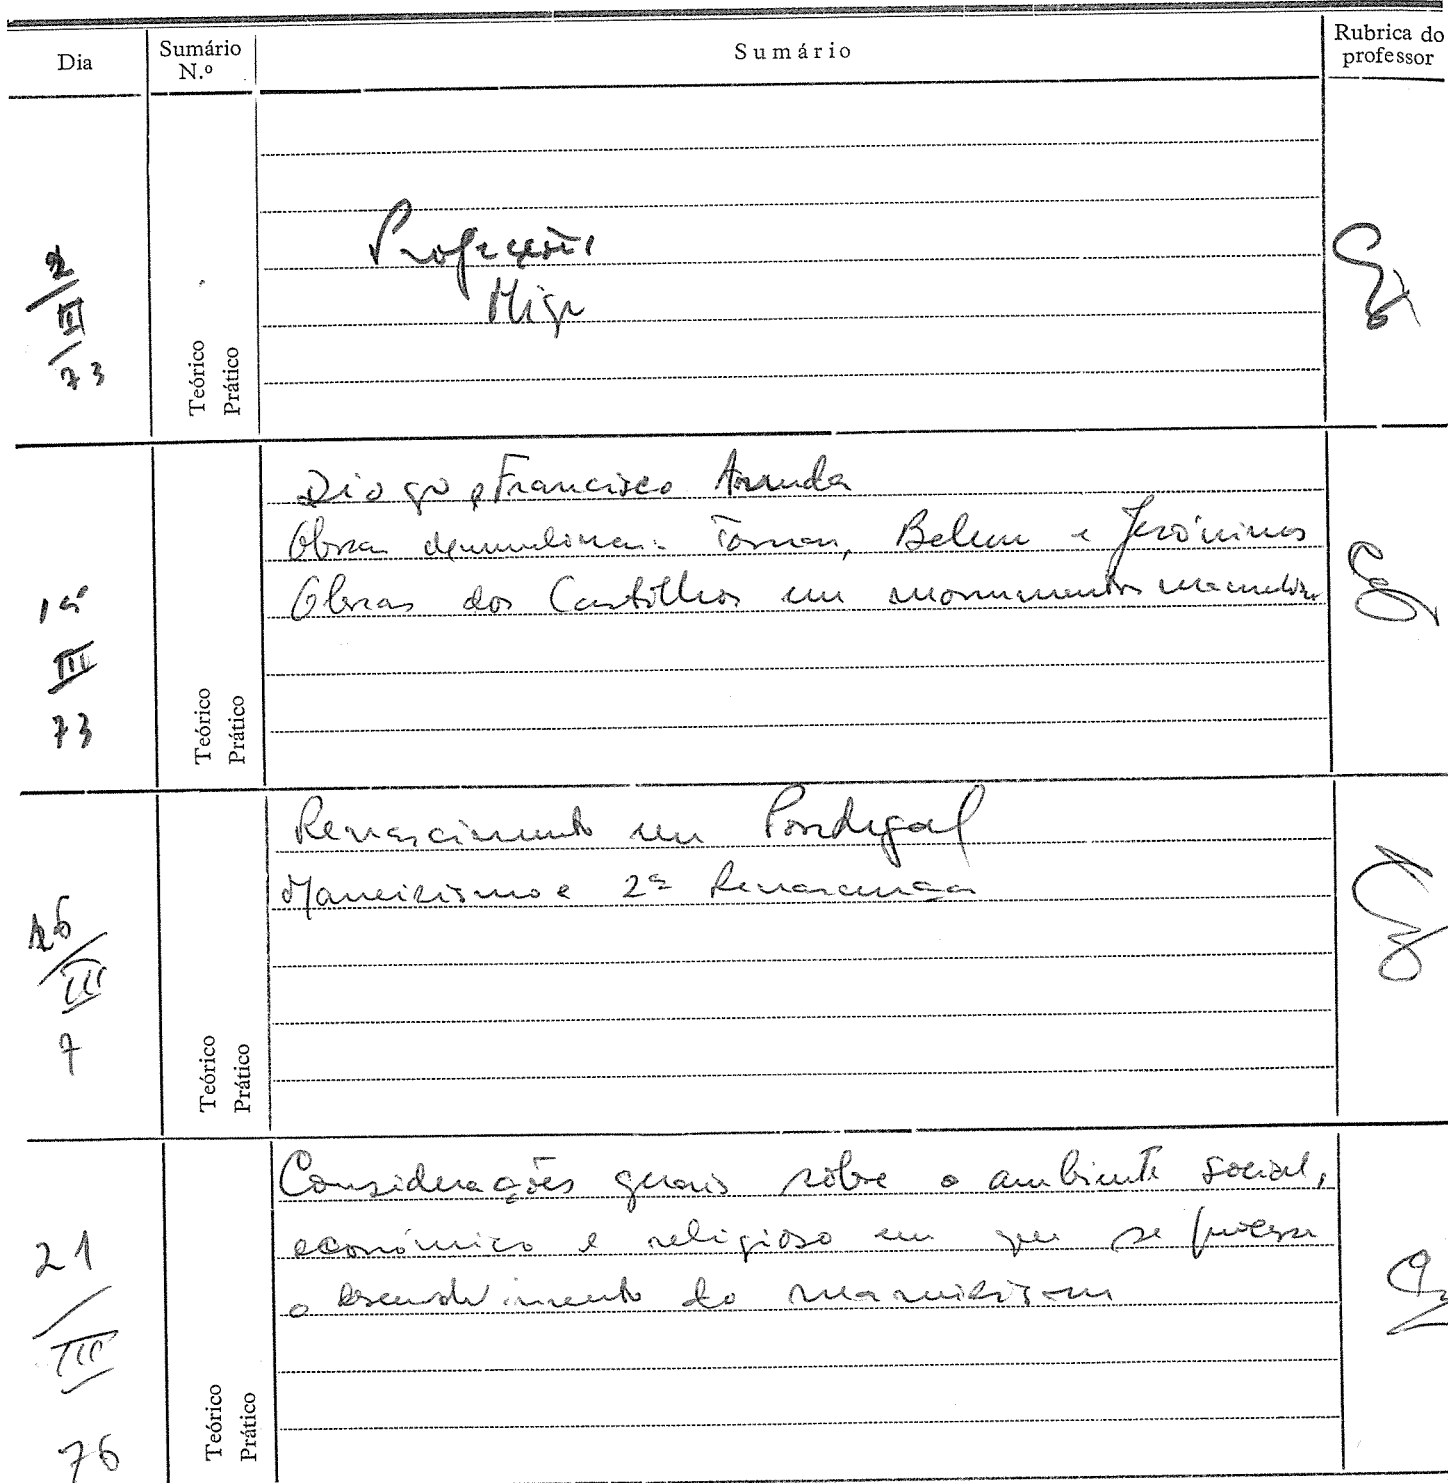 Dia
Sumário N.º
Sumário
Rubrica do professor
2
III
73
Teórico
Prático
Projecções
Diogo e Francisco Arruda
Obras Tomar, Belem e Jerónimos
Obras dos Castilhos em monumentos
III
73
Teórico
Prático
Renascimento em Portugal
Maneirismo e 2ª Renascença
16
III
7
Teórico
Prático
Considerações gerais sôbre o ambiente social,
económico e religioso em que se processa
o desenvolvimento do maneirismo
21
III
76
Teórico
Prático